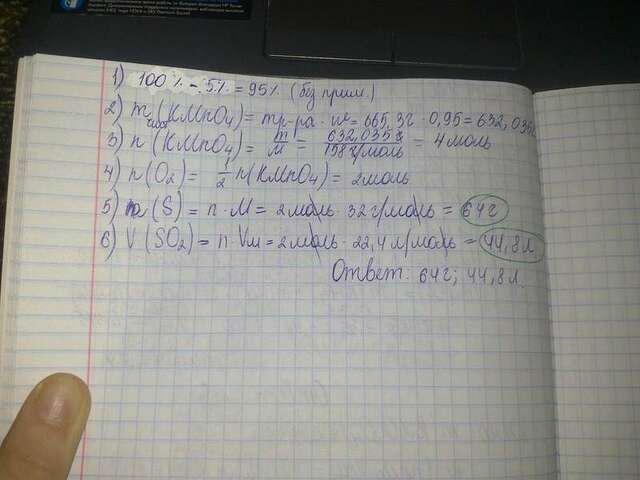 1) 100% - 5% = 95% (без прим.)
2) m чист (KMnO₄) = mр-ра · w = 665,3г · 0,95 = 632,035г
3) n (KMnO₄) = m/M = 632,035г/158г/моль = 4моль
4) n(O₂) = 1/2 n(KMnO₄) = 2моль
5) m(S) = n · M = 2моль · 32г/моль = 64г
6) V(SO₂) = n · Vm = 2моль · 22,4л/моль = 44,8л
Ответ: 64г; 44,8л.